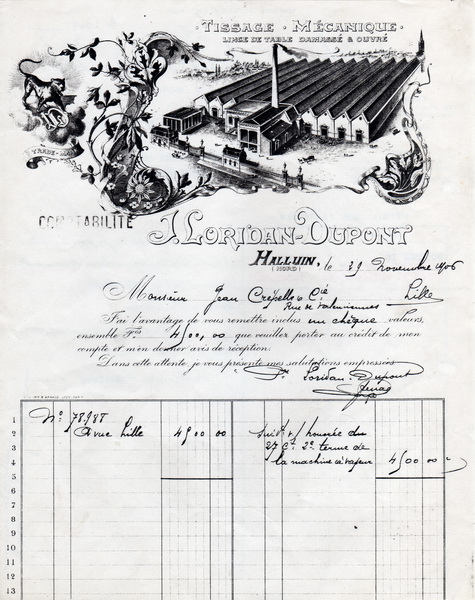 TISSAGE · MÉCANIQUE
LINGE DE TABLE DAMASSÉ & OUVRÉ
TRADE-
COMPTABILITÉ
J. LORIDAN-DUPONT
HALLUIN,
(NORD)
le 29 Novembre 1906
Monsieur Jean Crépelle & Cie
Rue de Valenciennes
Lille
J'ai l'avantage de vous remettre inclus un chèque valeurs,
ensemble Frs 4500,00 que veuillez porter au crédit de mon
compte et m'en donner avis de réception.
Dans cette attente, je vous présente mes salutations empressées
Loridan-Dupont
1 No 78988
2 à vue Lille 4500 00 Suivt v/ honorée du
3 27 ct 2e terme de
4 la machine à vapeur 4500 00
5
6
7
8
9
10
11
12
13